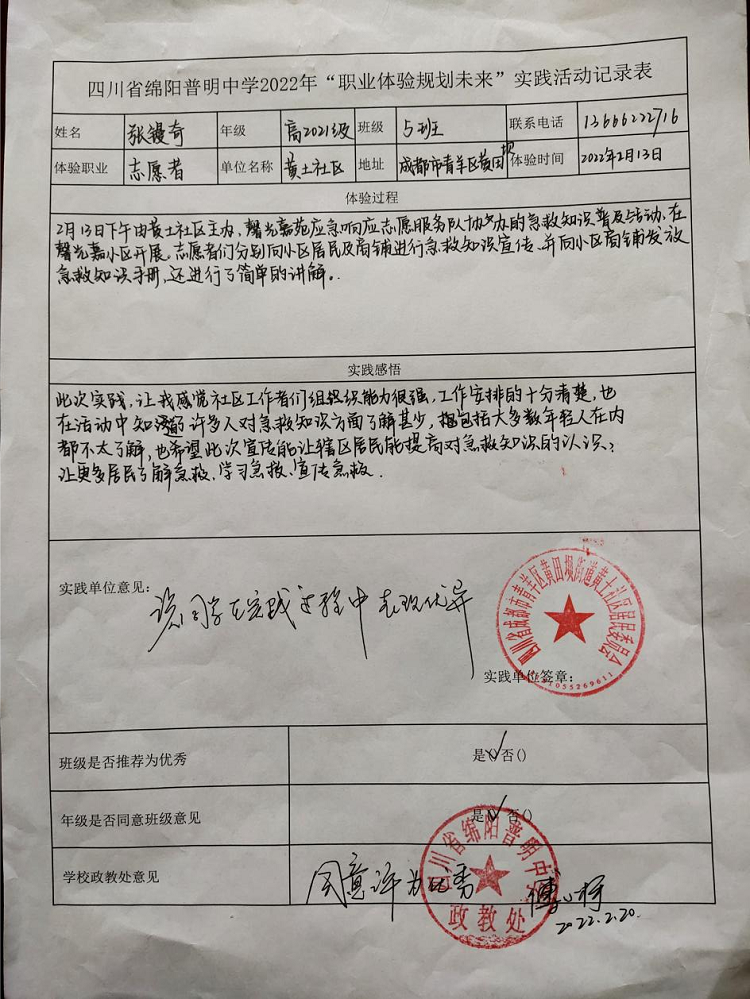 四川省绵阳普明中学2022年“职业体验规划未来”实践活动记录表
姓名 张镘奇 年级 高2021级 班级 5班 联系电话 13666222716
体验职业 志愿者 单位名称 黄土社区 地址 成都市青羊区黄田坝 体验时间 2022年2月13日
体验过程
2月13日下午由黄土社区主办,馨光嘉苑应急响应志愿服务队协办的急救知识普及活动,在
馨光嘉小区开展。志愿者们分别向小区居民及商铺进行急救知识宣传,并向小区商铺发放
急救知识手册,还进行了简单的讲解。
实践感悟
此次实践,让我感觉社区工作者们组织能力很强,工作安排的十分清楚,也
在活动中知道的许多人对急救知识方面了解甚少,包括大多数年轻人在内
都不太了解,也希望此次宣传能让辖区居民能提高对急救知识的认识,
让更多居民了解急救,学习急救,宣传急救。
实践单位意见:
该同学在实践过程中表现优异
四川省成都市青羊区黄田坝街道黄土社区居民委员会
实践单位签章:
班级是否推荐为优秀 是(✓) 否()
年级是否同意班级意见 是(✓) 否()
学校政教处意见 同意评为优秀
四川省绵阳普明中学
政教处
2022.2.20.